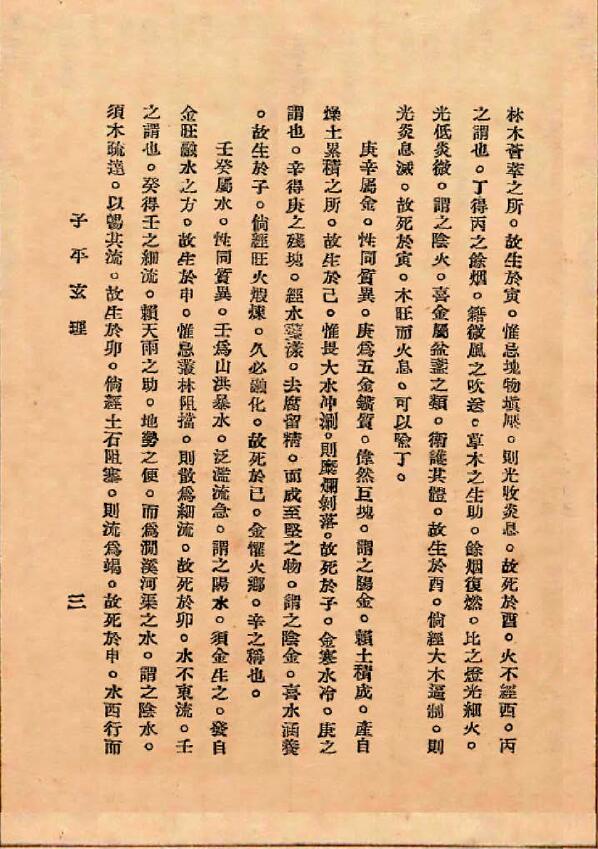 林木薈萃之所。故生於寅。惟忌塊物塡壓。則光收炎息。故死於酉。火不經西。丙
之謂也。丁得丙之餘烟。籍微風之吹送。草木之生助。餘烟復燃。比之燈光細火。
光低炎微。謂之陰火。喜金屬盆盞之類。衛護其體。故生於酉。倘經大木逼制。則
光炎息滅。故死於寅。木旺而火息。可以喻丁。
庚辛屬金。性同質異。庚爲五金鑛質。偉然巨塊。謂之陽金。賴土積成。產自
燥土累積之所。故生於巳。惟畏大水冲涮。則糜爛剝落。故死於子。金寒水冷。庚之
謂也。辛得庚之殘塊。經水蕩漾。去腐留精。而成至堅之物。謂之陰金。喜水涵養
。故生於子。倘經旺火煆煉。久必融化。故死於巳。金懼火鄉。辛之稱也。
壬癸屬水。性同質異。壬爲山洪暴水。泛濫流急。謂之陽水。須金生之。發自
金旺融水之方。故生於申。惟忌叢林阻擋。則散爲細流。故死於卯。水不東流。壬
之謂也。癸得壬之細流。賴天雨之助。地勢之便。而爲澗溪河渠之水。謂之陰水。
須木疏達。以暢其流。故生於卯。倘經土石阻塞。則流爲竭。故死於申。水西行而
子平玄理
三